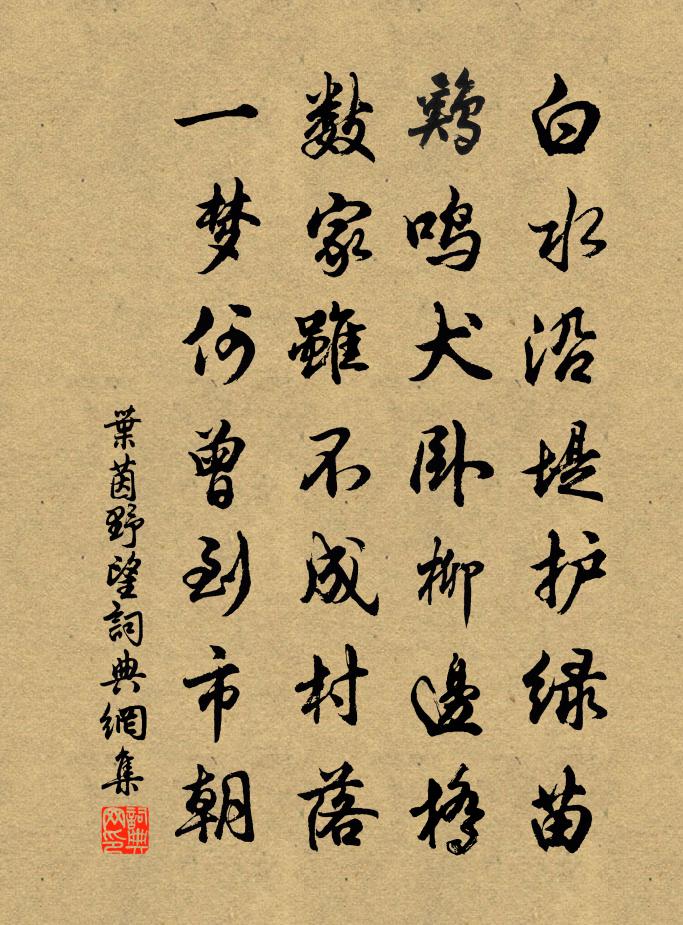 白水沿堤护绿苗
鷄鳴犬卧柳邊橋
数家雖不成村落
一梦何曾到市朝
葉茵野望詞典網集
詞典網印